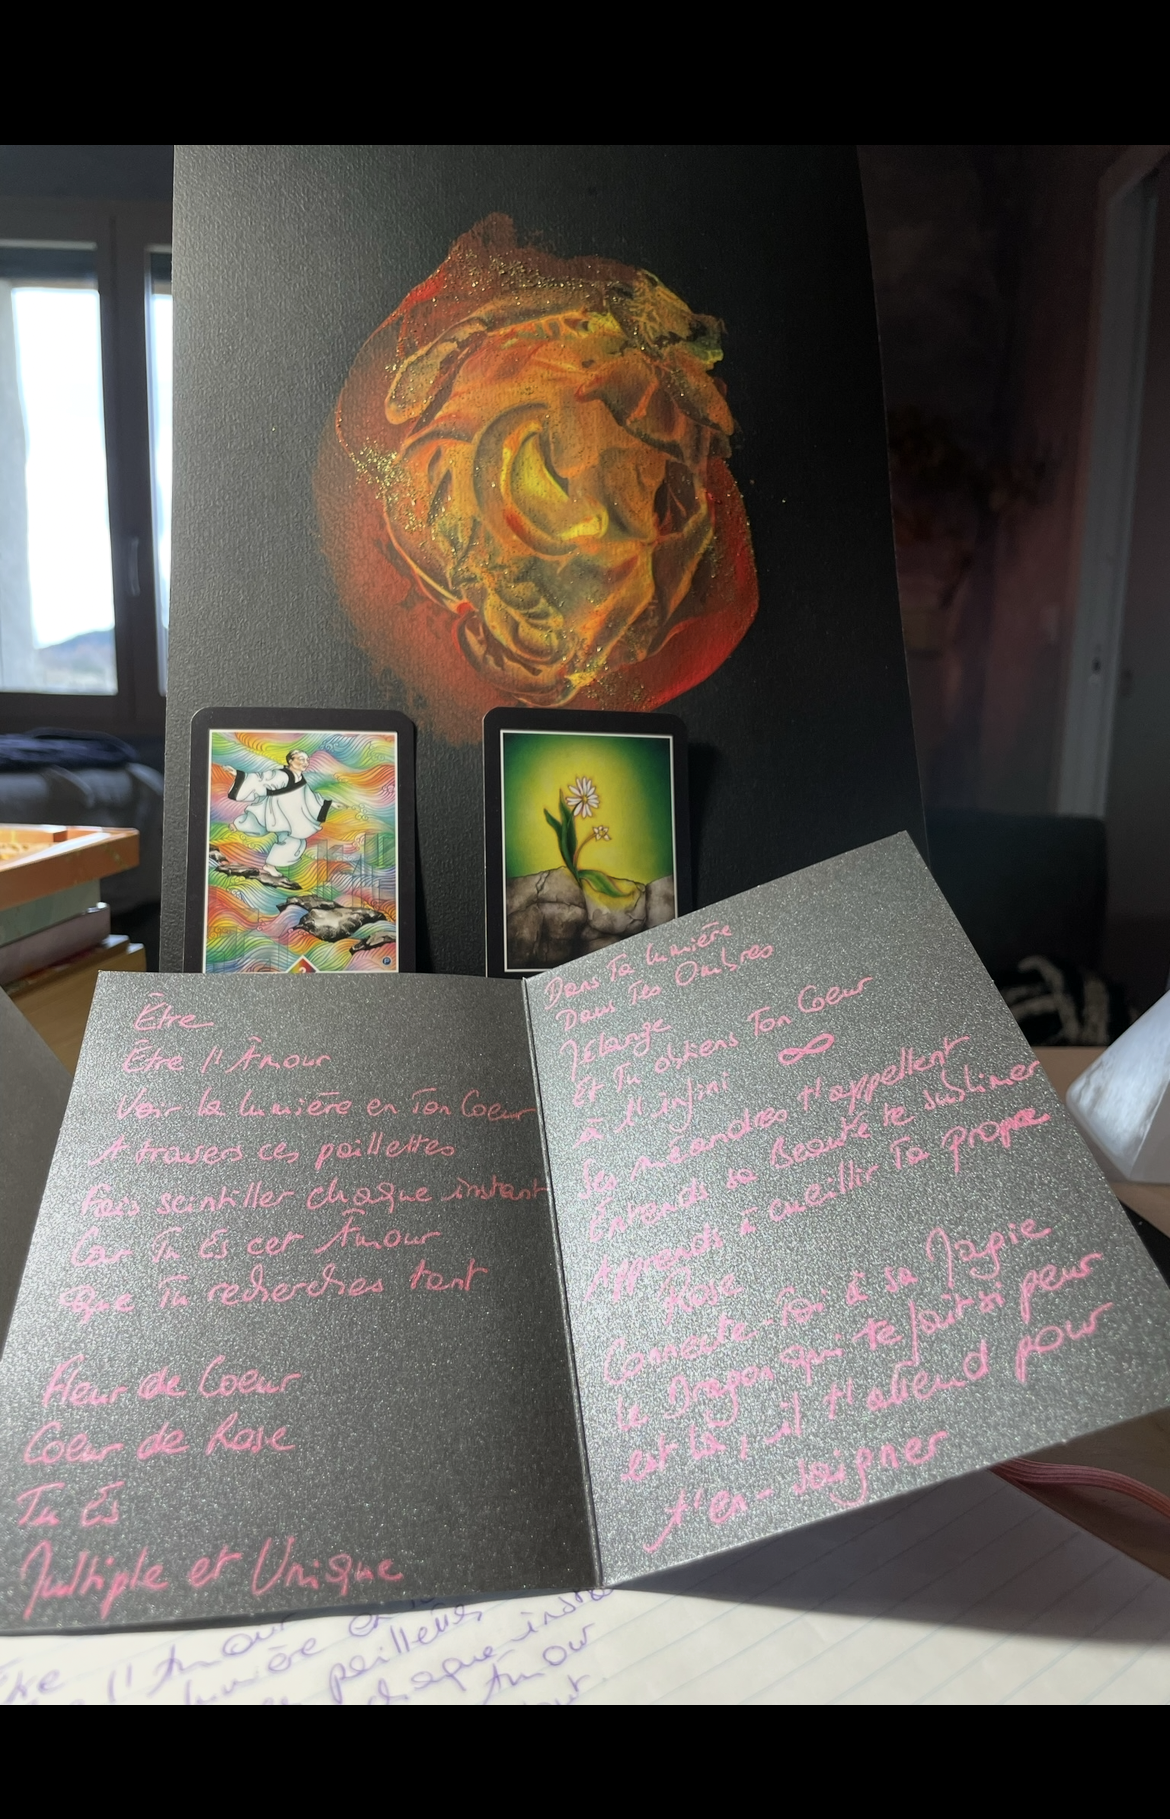 Être
Être l'Âmour
Voir la lumière en Ton Coeur
A travers ces paillettes
Fais scintiller chaque instant
Car Tu Es cet Âmour
Que Tu recherches tant
Fleur de Coeur
Coeur de Rose
Tu Es
Multiple et Unique
Dans Ta lumière
Dans Tes Ombres
Mélange
Et Tu obtiens Ton Coeur
à l'infini ∞
Ses méandres t'appellent
Entends sa Beauté te sublimer
Apprends à cueillir Ta propre
Rose
Connecte-Toi à sa Magie
Le Dragon qui te fait si peur
est là, il t'attend pour
t'en-seigner
Être
l'Amour
lumière en
paillettes
chaque insta
Amour